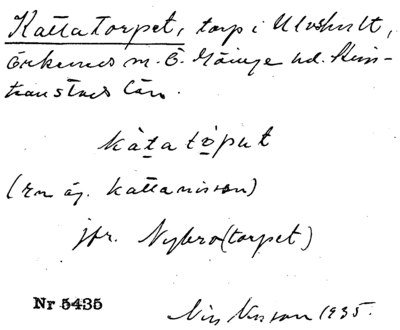 Kattatorpet, torp i Ulvshult,
Örkeneds sn. Ö. Göinge hd. Kris-
tianstads län.
kàtatòput
(en äg. Katta nisson)
jfr. Nybro(torpet)
Nr 5435
Nils Nilsson 1935.